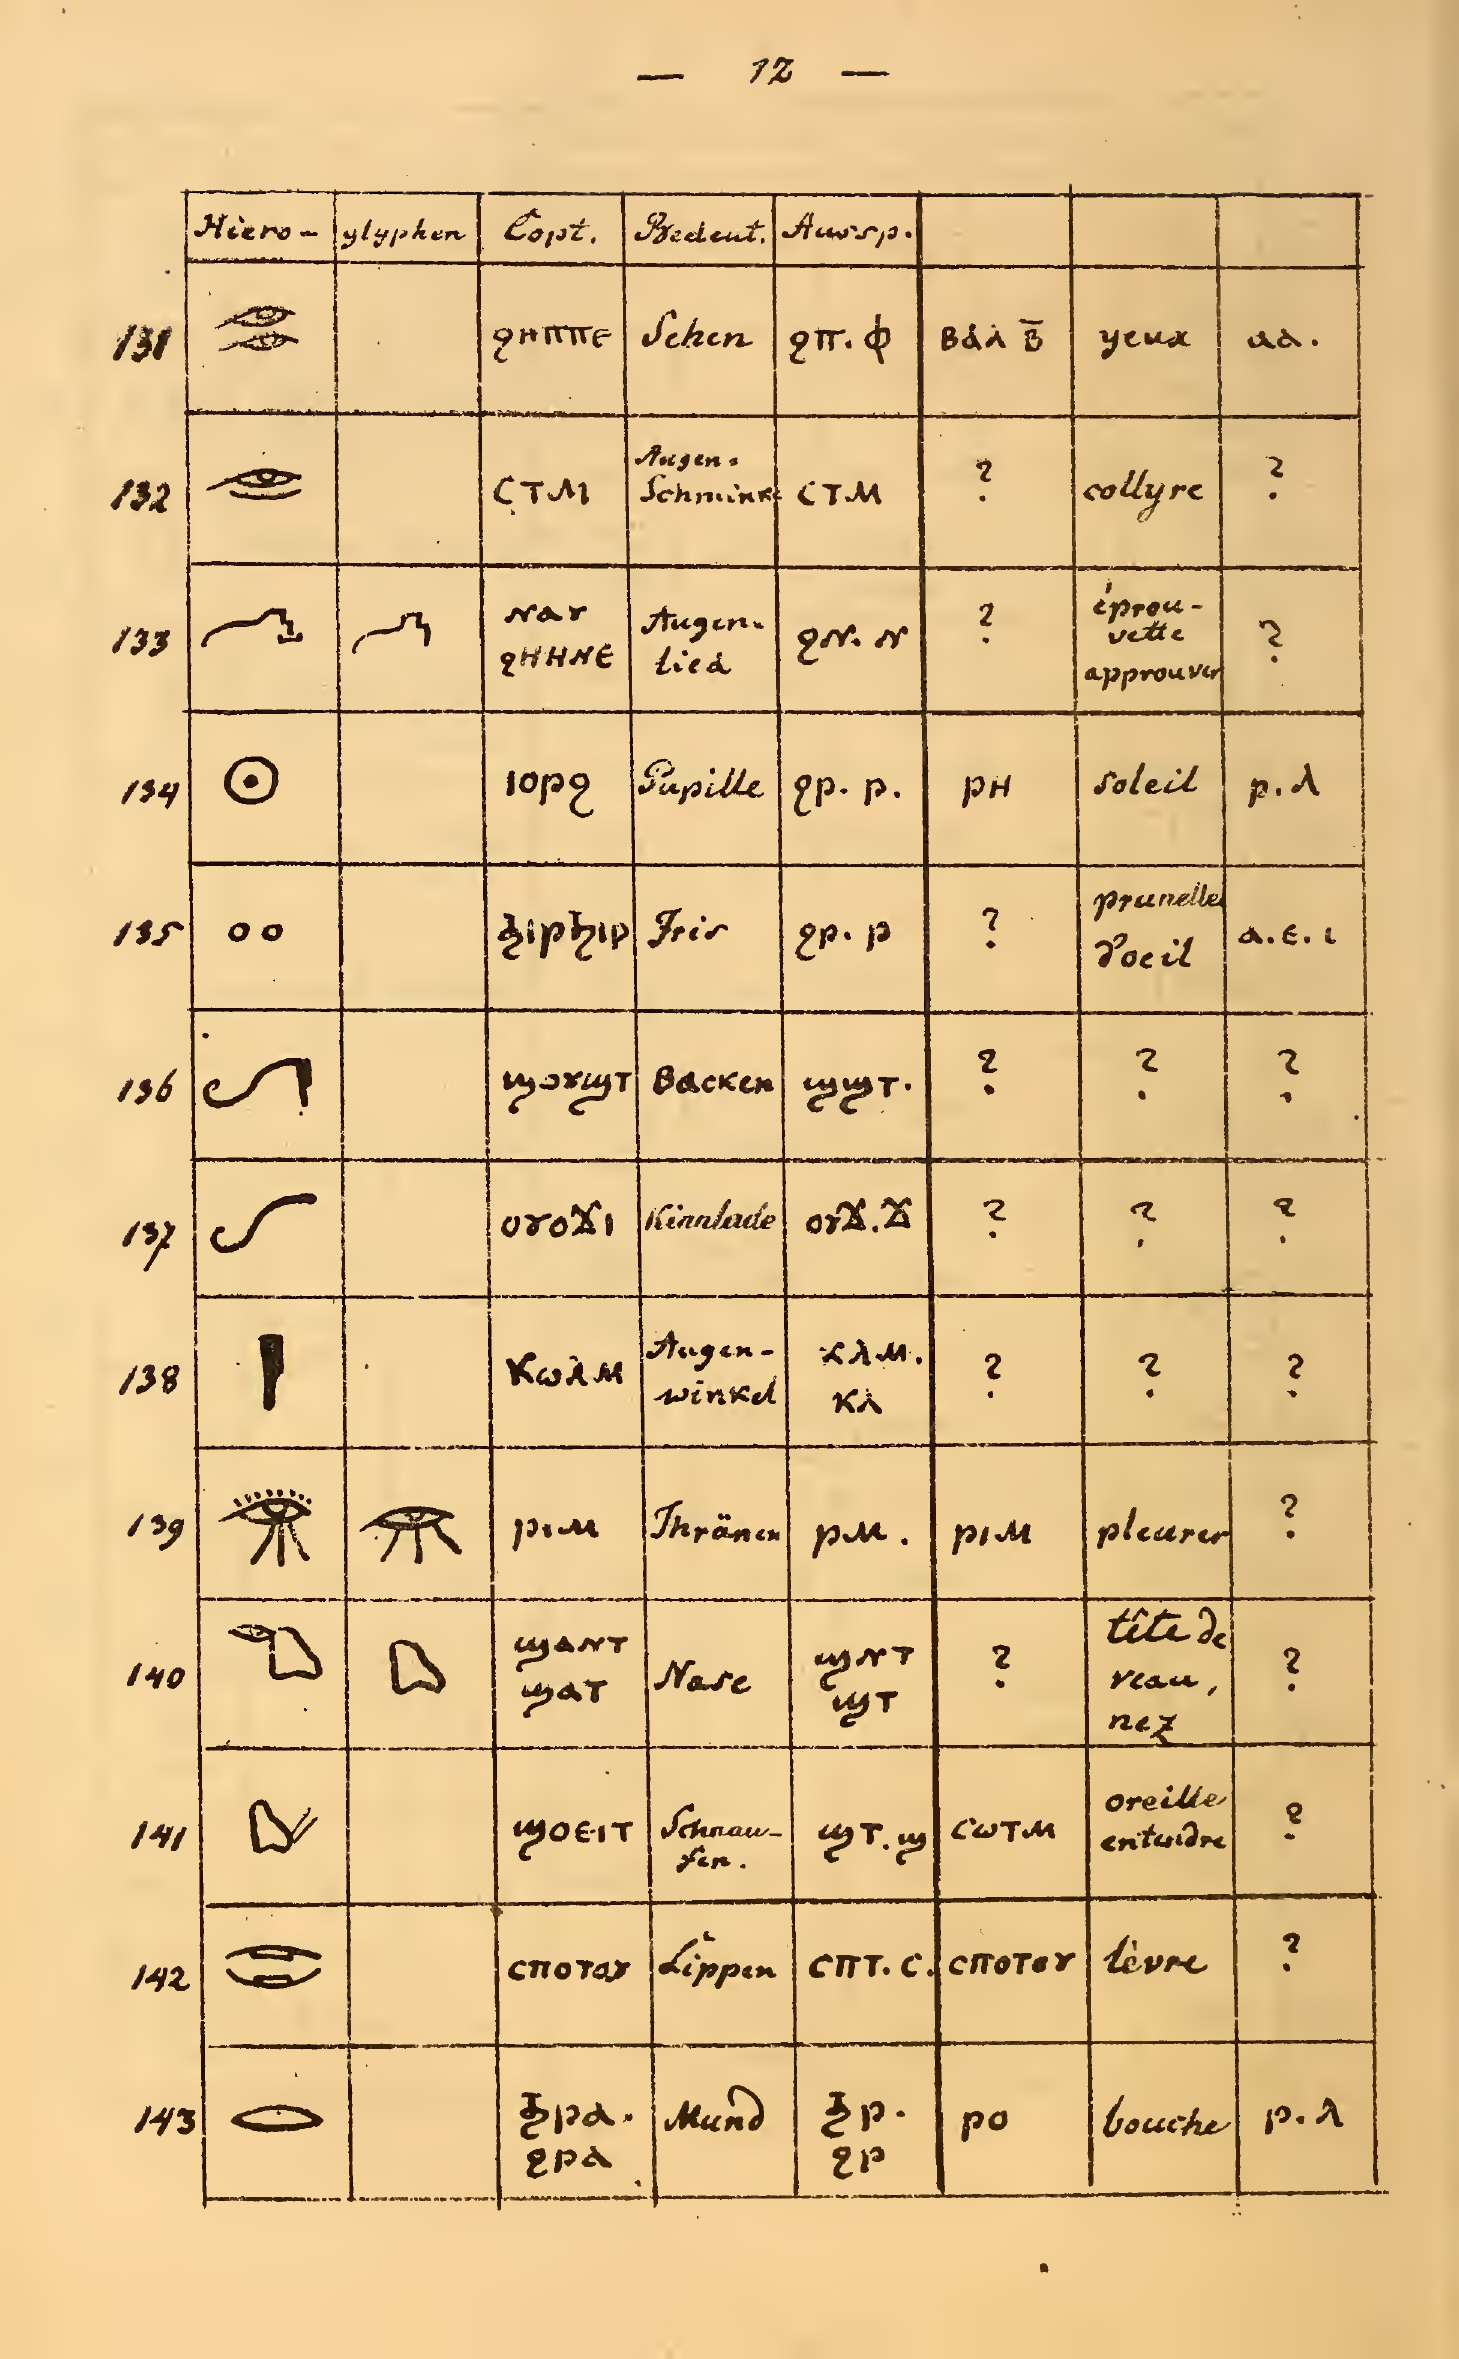 — 12 —
Hiero- glyphen Copt. Bedeut. Aussp.
131 ϩⲏⲡⲡⲉ Sehen ϩⲡ. ⲫ ⲃⲁⲗ ⲃ̅ yeux ⲁⲁ.
132 ⲥⲧⲙ Augen- Schminke ⲥⲧⲙ ? collyre ?
133 ⲛⲁⲩ ϩⲏⲏⲛⲉ Augen- lied ϩⲛ. ⲛ ? éprou- vette approuver ?
134 ⲓⲟⲣϩ Pupille ϩⲣ. ⲣ. ⲣⲏ soleil ⲣ. ⲗ
135 ϧⲓⲣϧⲓⲣ Iris ϩⲣ. ⲣ ? prunelle d'oeil ⲁ. ⲉ. ⲓ
136 ϣⲟⲩϣⲧ Backen ϣϣⲧ. ? ? ?
137 ⲟⲩⲟϫⲓ Kinnlade ⲟⲩϫ. ϫ ? ? ?
138 ⲕⲱⲗⲙ Augen- winkel ⲕⲗⲙ. ⲕⲗ ? ? ?
139 ⲣⲓⲙ Thränen ⲣⲙ. ⲣⲓⲙ pleurer ?
140 ϣⲁⲛⲧ ϣⲁⲧ Nase ϣⲛⲧ ϣⲧ ? tête de veau, nez ?
141 ϣⲟⲉⲓⲧ Schnau- fen. ϣⲧ. ϣ ⲥⲱⲧⲙ oreille entendre ?
142 ⲥⲡⲟⲧⲟⲩ Lippen ⲥⲡⲧ. ⲥ. ⲥⲡⲟⲧⲟⲩ lèvre ?
143 ϧⲣⲁ. ϩⲣⲁ Mund ϧⲣ. ϩⲣ ⲣⲟ bouche ⲣ. ⲗ